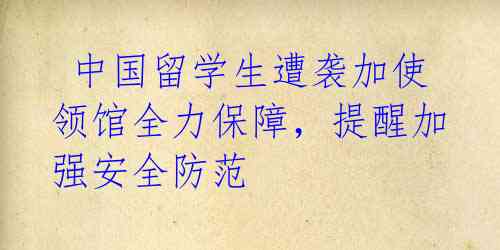 中国留学生遭袭加使
领馆全力保障，提醒加
强安全防范